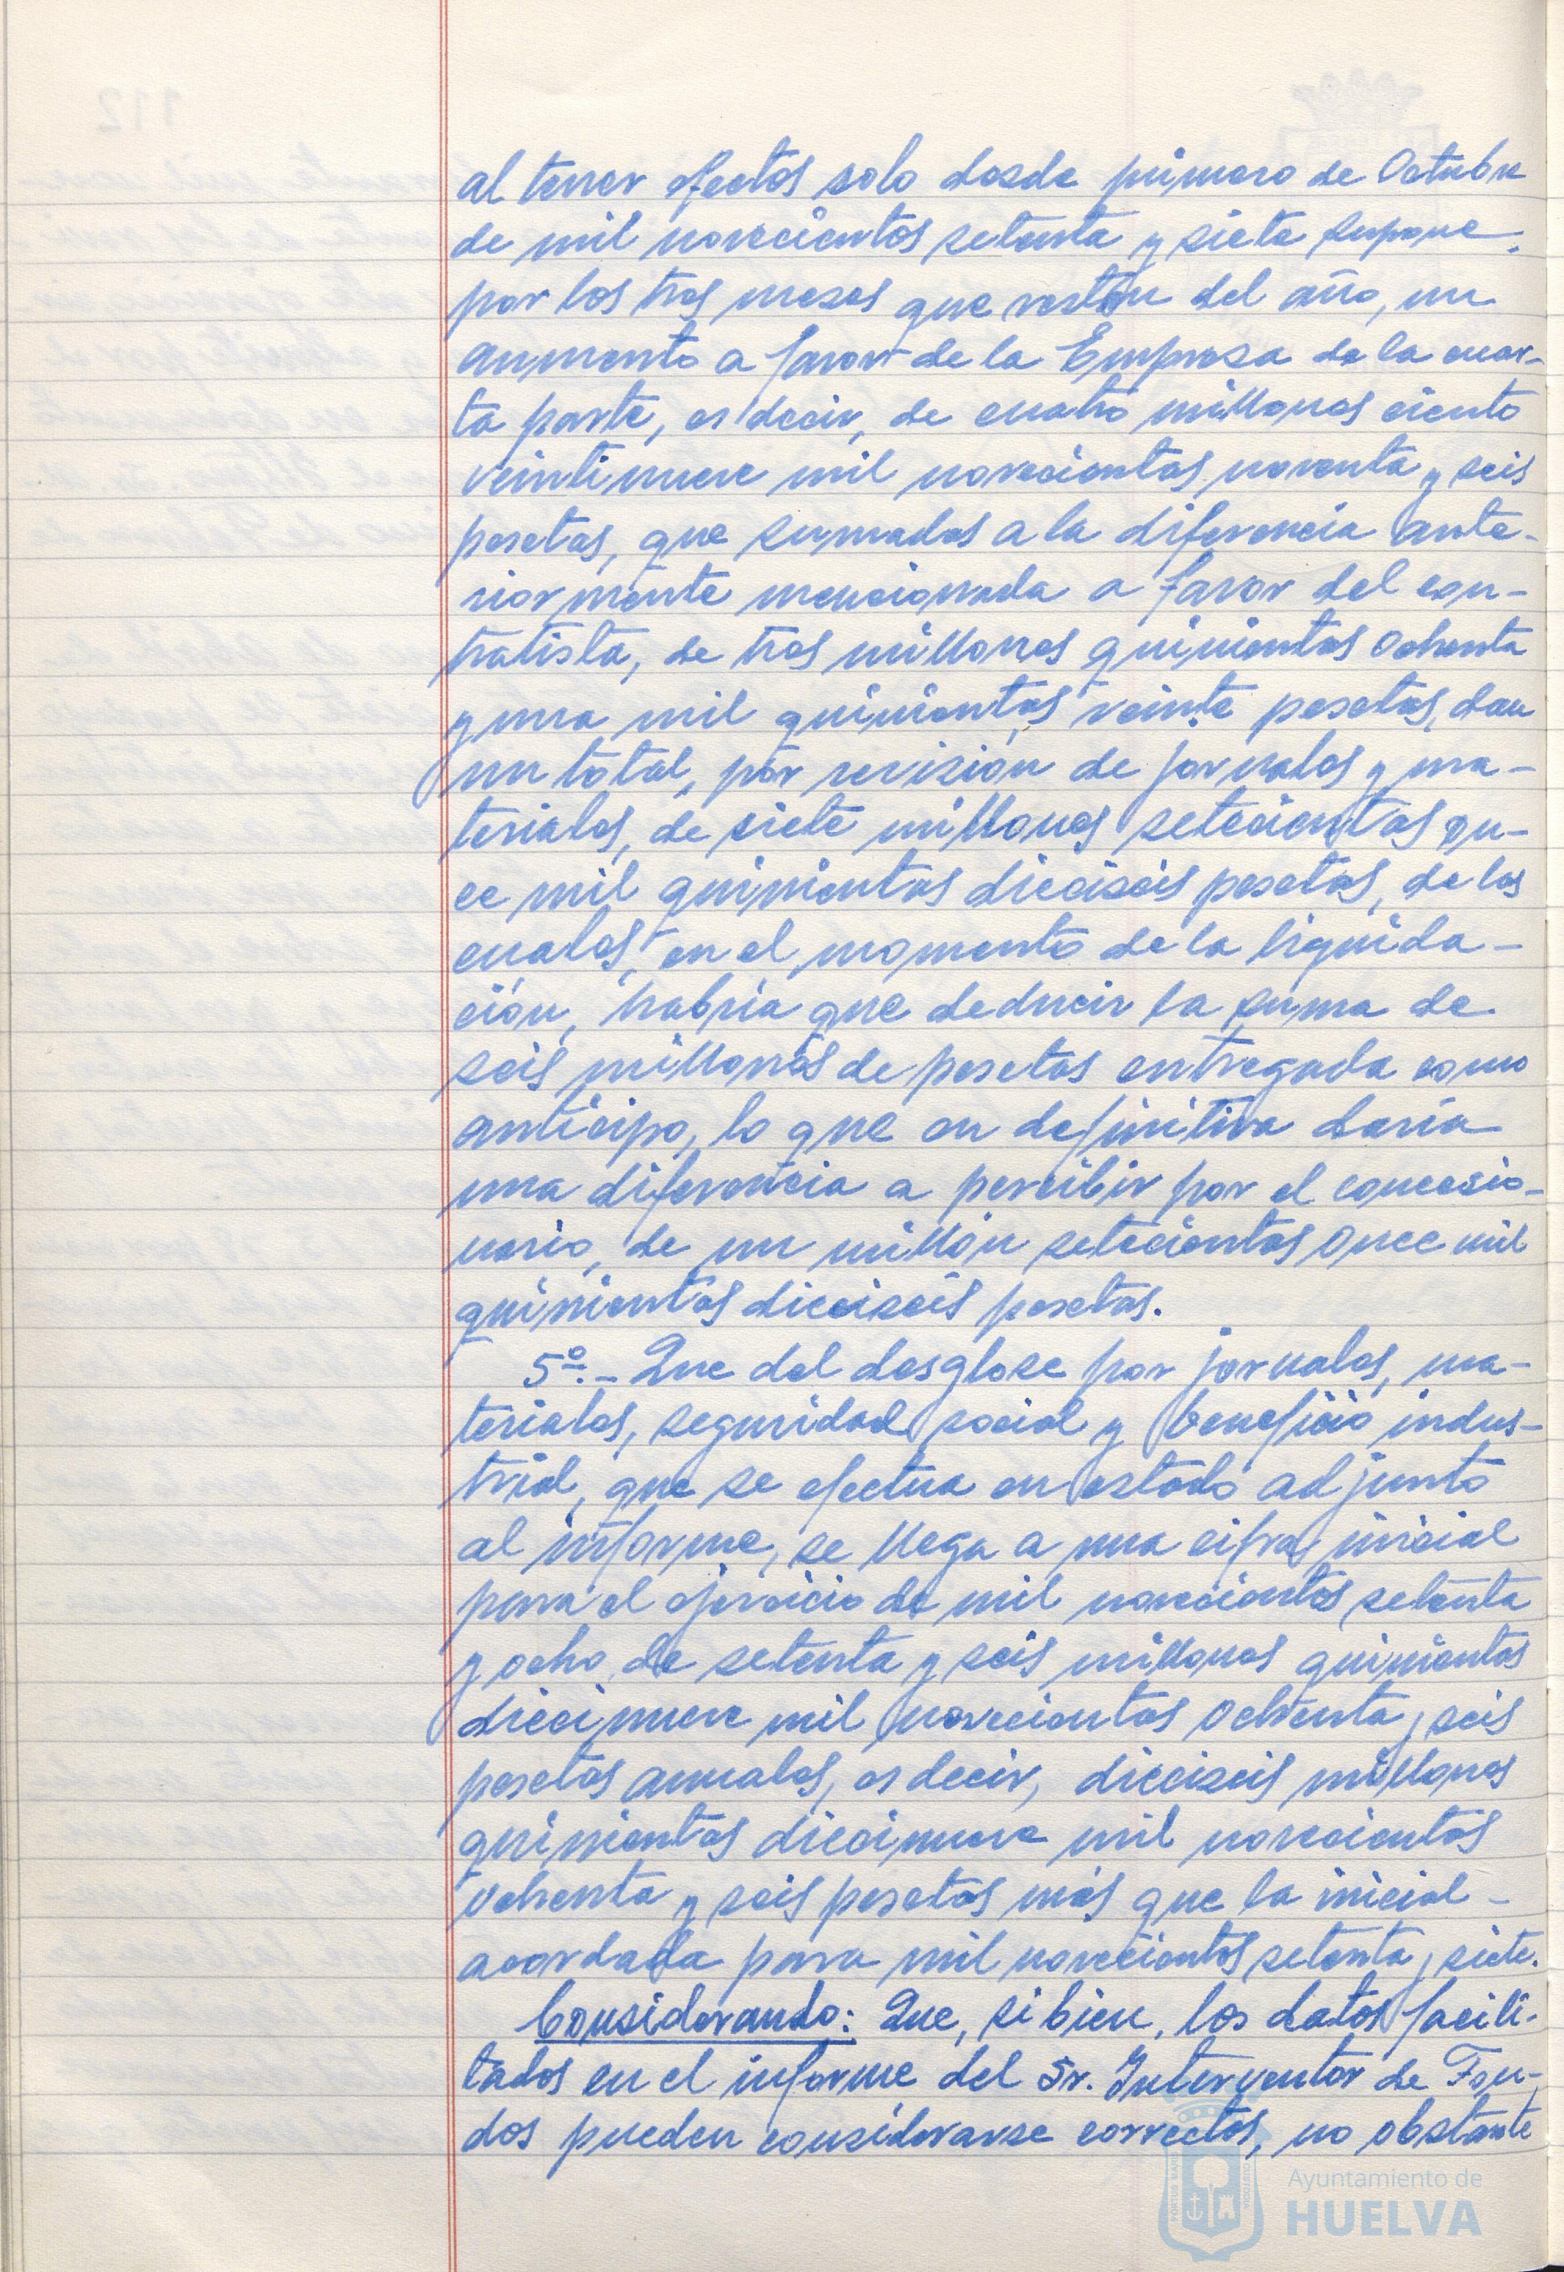 al tener efectos solo desde primero de Octubre
de mil novecientos setenta y siete supone,
por los tres meses que restan del año, un
aumento a favor de la Empresa de la cuar-
ta parte, es decir, de cuatro millones ciento
veintinueve mil novecientas noventa y seis
pesetas, que sumadas a la diferencia ante-
riormente mencionada a favor del con-
tratista, de tres millones quinientas ochenta
y una mil quinientas veinte pesetas, dan
un total, por revisión de jornales y ma-
teriales, de siete millones setecientas on-
ce mil quinientas dieciséis pesetas, de las
cuales, en el momento de la liquida-
ción, habría que deducir la suma de
seis millones de pesetas entregada como
anticipo, lo que en definitiva daría
una diferencia a percibir por el concesio-
nario, de un millón setecientas once mil
quinientas dieciseis pesetas.
5º.- Que del desglose por jornales, ma-
teriales, seguridad social y beneficio indus-
trial, que se efectua en estado adjunto
al informe, se llega a una cifra inicial
para el ejercicio de mil novecientos setenta
y ocho de setenta y seis millones quinientas
diecinueve mil novecientas ochenta y seis
pesetas anuales, es decir, dieciseis millones
quinientas diecinueve mil novecientas
ochenta y seis pesetas más que la inicial-
acordada para mil novecientos setenta y siete.
Considerando: Que, si bien, los datos facili-
tados en el informe del Sr. Interventor de Fon-
dos pueden considerarse correctos, no obstante
Ayuntamiento de
HUELVA